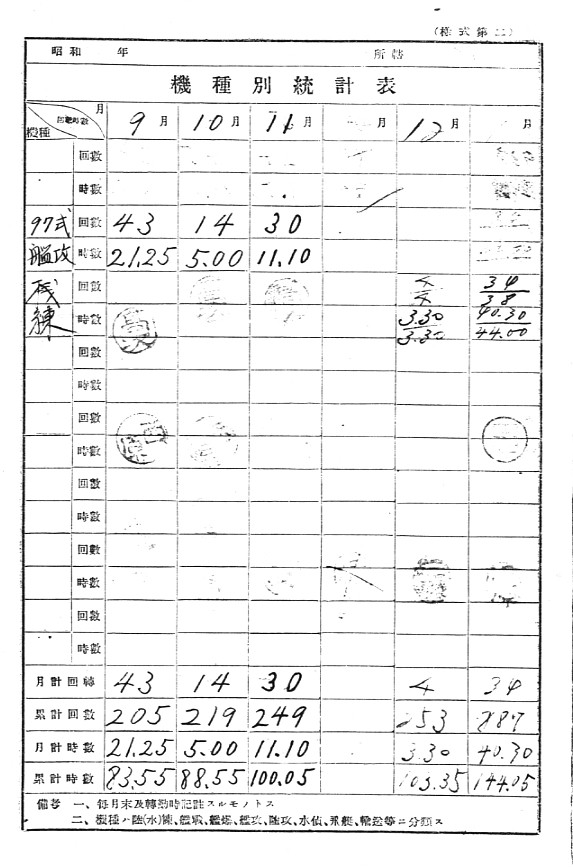 (様式第二)
昭和 年 所轄
機種別統計表
月 回数時数 機種 9月 10月 11月 月 12月 月
回数
時数
97式 回数 43 14 30
艦攻 時数 21.25 5.00 11.10
回数 4 34
4 38
練 時数 3.30 40.30
3.30 44.00
回数
時数
回数
時数
回数
時数
回数
時数
回数
時数
月計回轉 43 14 30 4 34
累計回数 205 219 249 253 287
月計時数 21.25 5.00 11.10 3.30 40.30
累計時数 83.55 88.55 100.05 103.35 144.05
備考 一、毎月末及轉勤時記註スルモノトス
二、機種ハ陸(水)練、艦戰、艦爆、艦攻、陸攻、水偵、飛艇、輸送等ニ分類ス